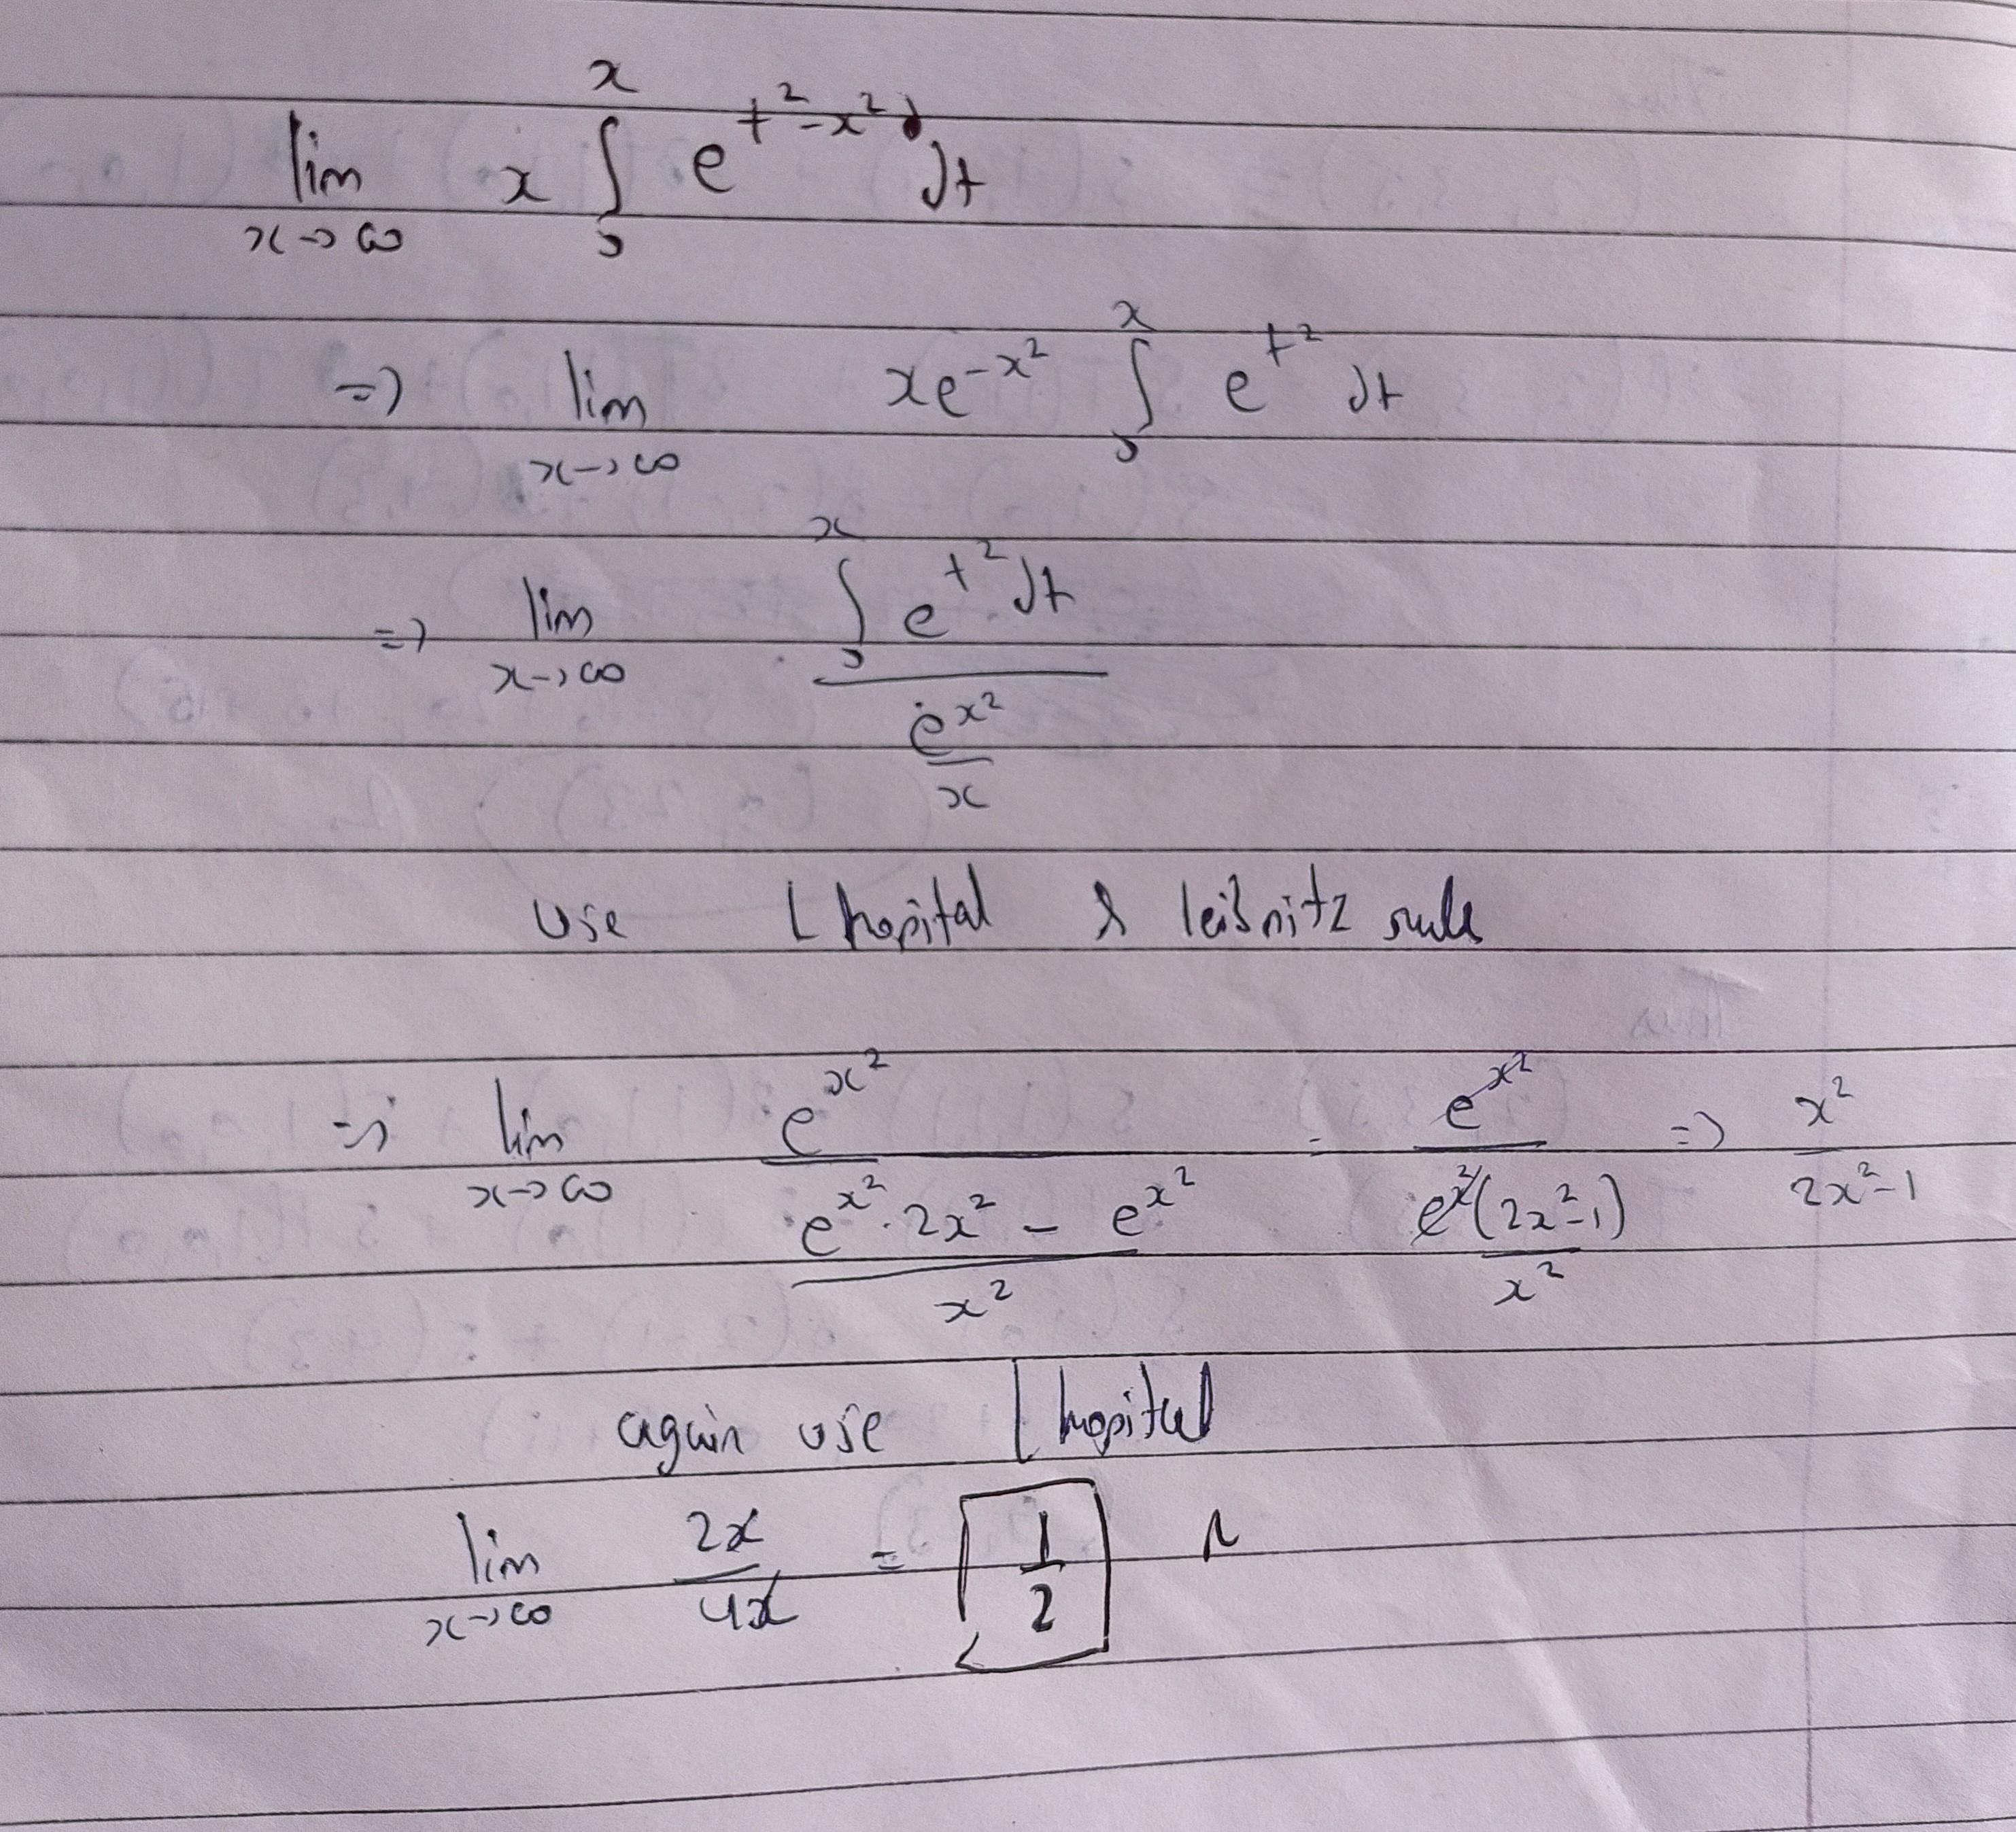 lim x→∞ x ∫₀ˣ e^(t²-x²) dt
=> lim x→∞ xe^(-x²) ∫₀ˣ e^(t²) dt
=> lim x→∞ (∫₀ˣ e^(t²) dt) / (e^(x²) / x)
use L hopital & leibnitz rule
=> lim x→∞ e^(x²) / ((e^(x²) · 2x² - e^(x²)) / x²) = e^(x²) / (e^(x²)(2x²-1) / x²) => x² / (2x²-1)
again use L hopital
lim x→∞ 2x / 4x = 1/2